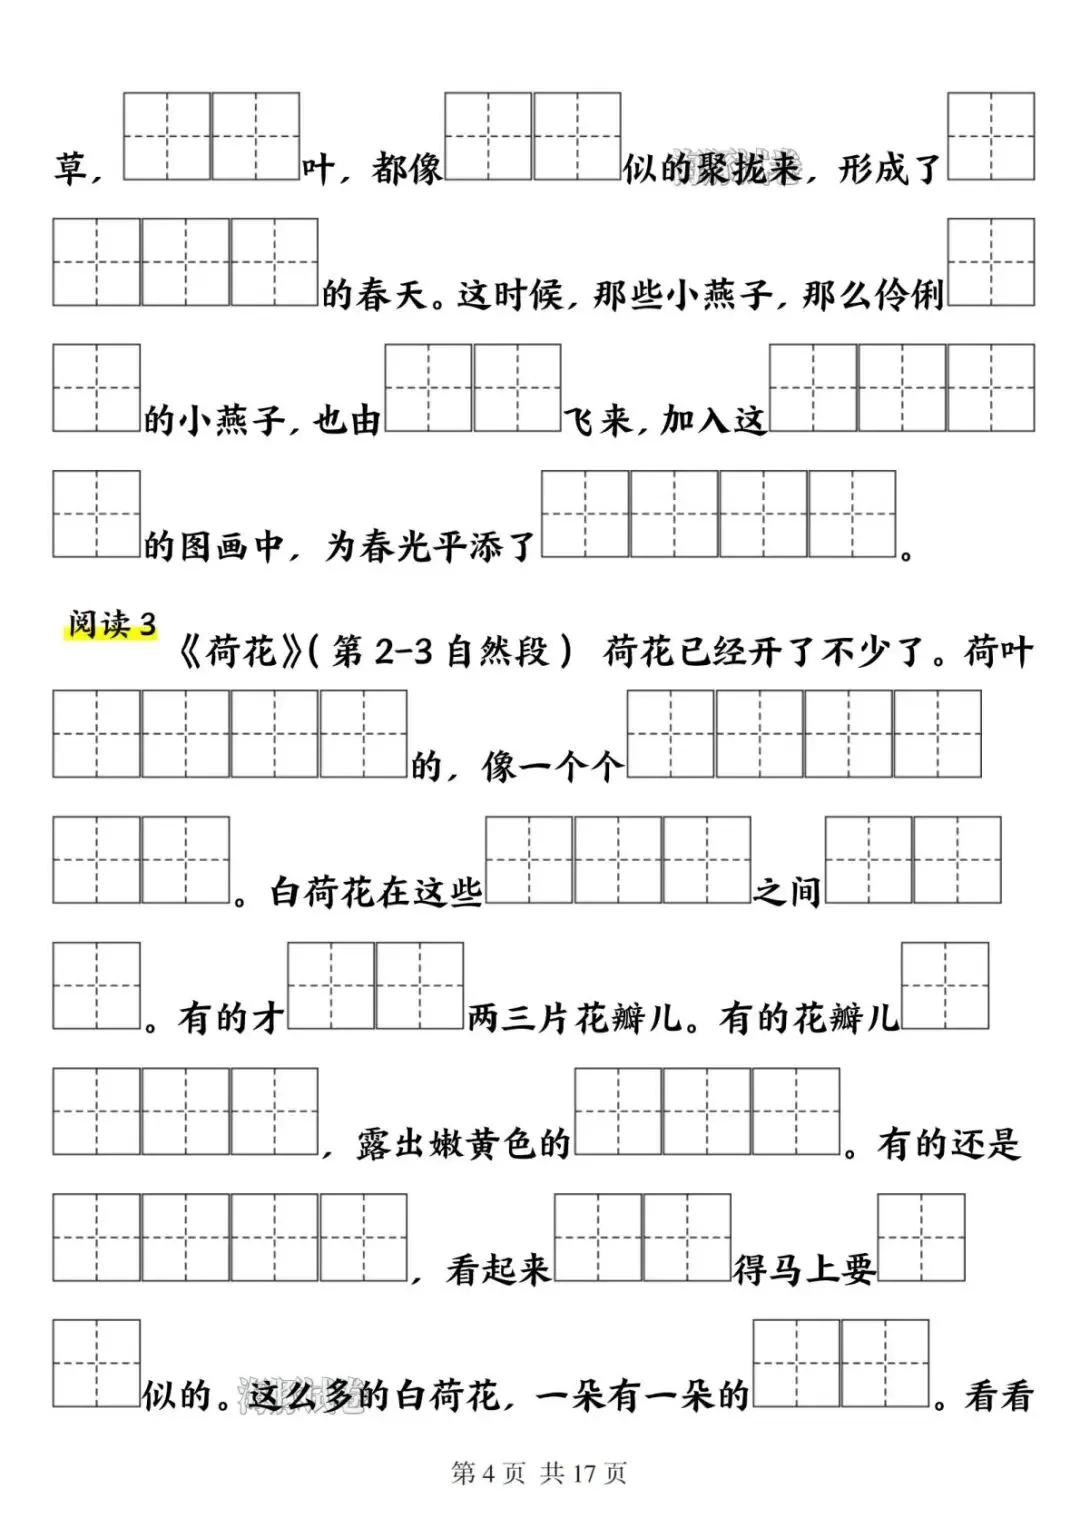 草，叶，都像似的聚拢来，形成了
的春天。这时候，那些小燕子，那么伶俐
的小燕子，也由飞来，加入这
的图画中，为春光平添了。
阅读3
《荷花》（第2-3自然段） 荷花已经开了不少了。荷叶
的，像一个个
。白荷花在这些之间
。有的才两三片花瓣儿。有的花瓣儿
，露出嫩黄色的。有的还是
，看起来得马上要
似的。这么多的白荷花，一朵有一朵的。看看
第4页 共17页
海豚试卷
海豚试卷